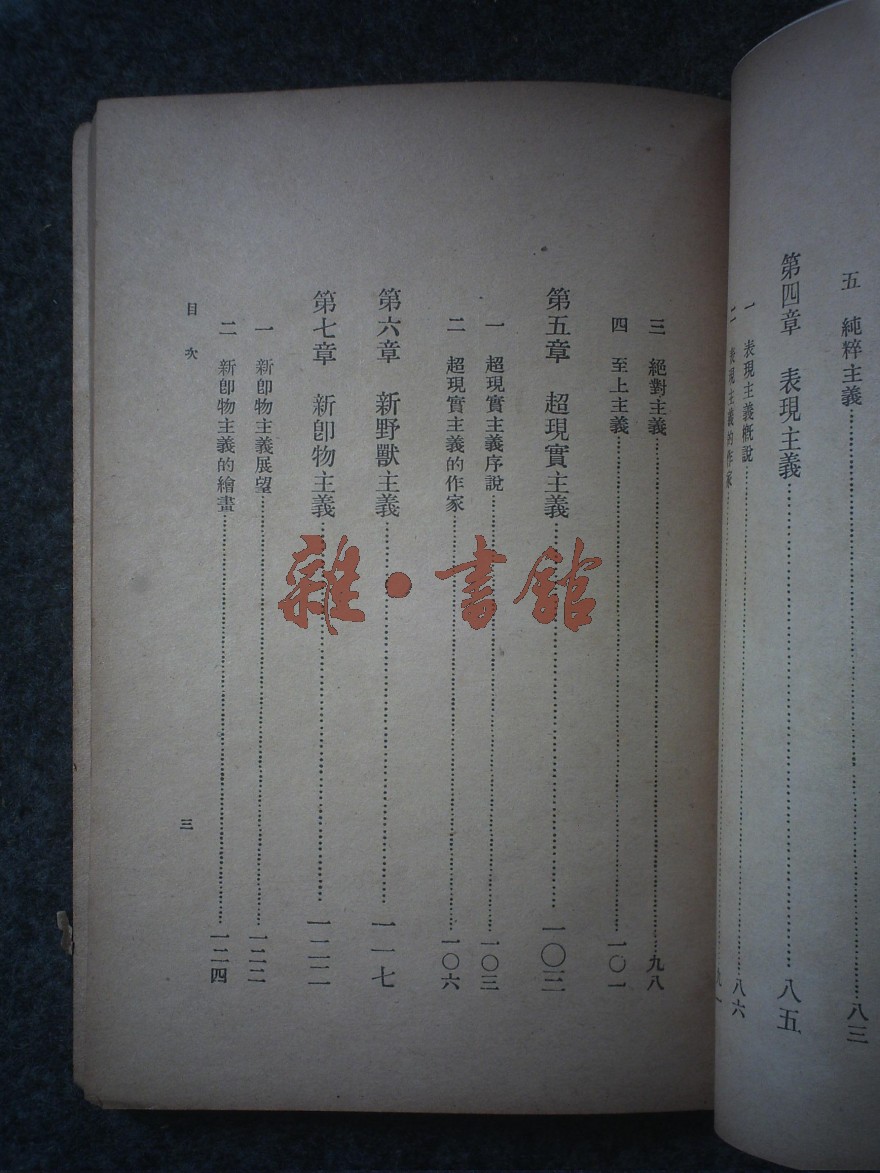 五 純粹主義……八三
第四章 表現主義……八五
一 表現主義概說……八六
二 表現主義的作家……九
三 絕對主義……九八
四 至上主義……一〇一
第五章 超現實主義……一〇三
一 超現實主義序說……一〇三
二 超現實主義的作家……一〇六
第六章 新野獸主義……一一七
第七章 新卽物主義……一二二
一 新卽物主義展望……一二二
二 新卽物主義的繪畫……一二四
目次
三
雜·書館